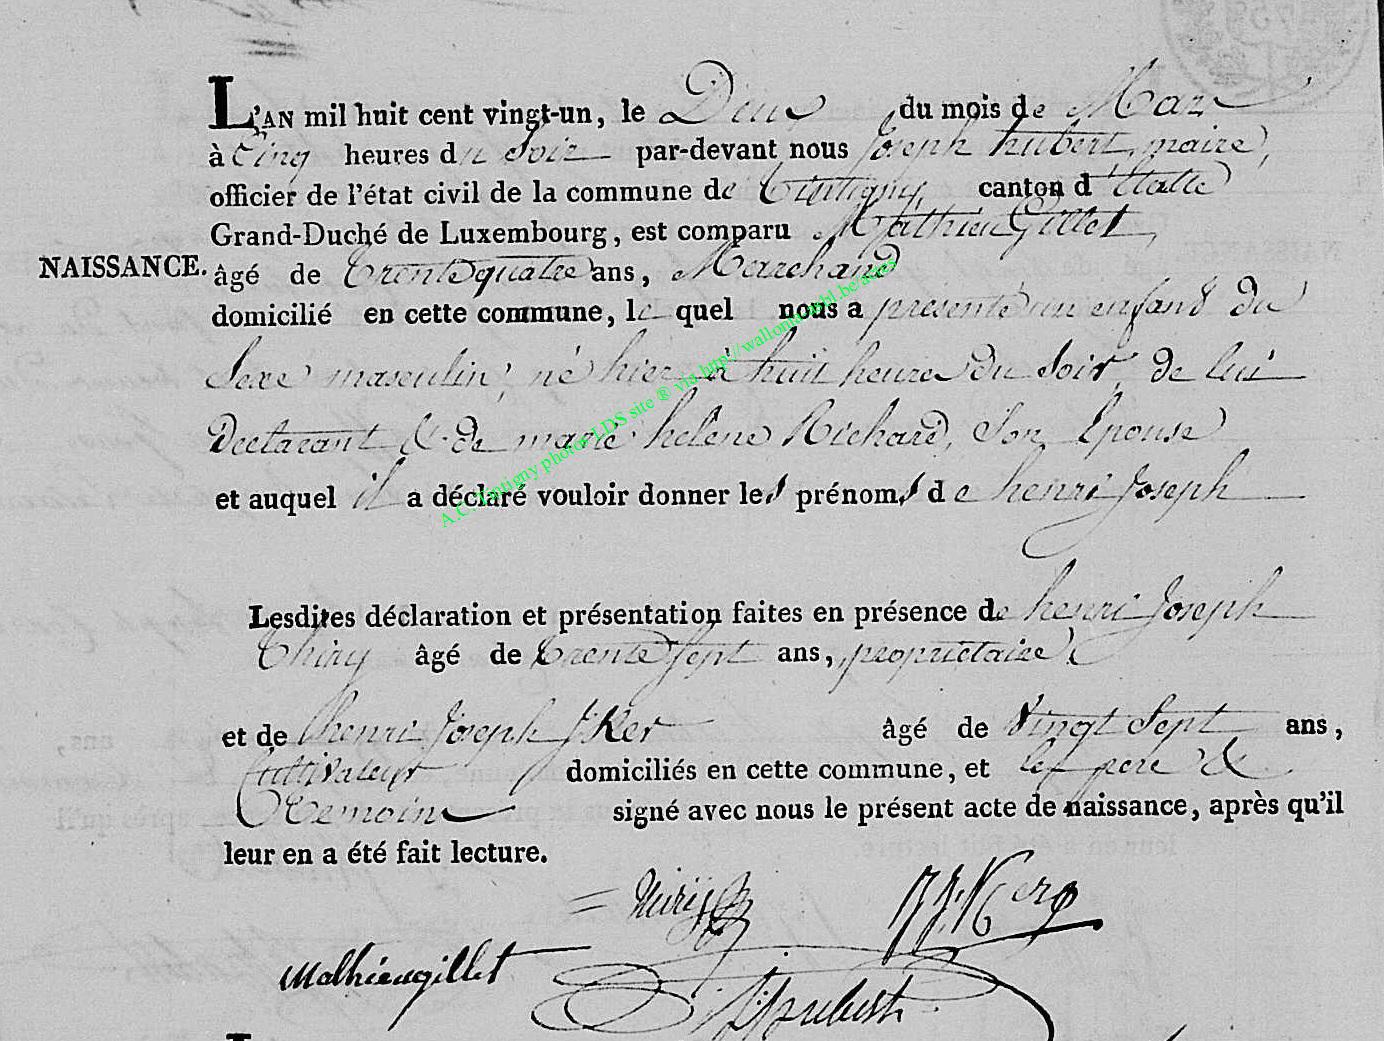 L'AN mil huit cent vingt-un, le Deux du mois de Mars
à Cinq heures du Soir par-devant nous Joseph hubert, maire,
officier de l'état civil de la commune de Tintigny, canton d'Etalle
Grand-Duché de Luxembourg, est comparu Mathieu Gillet,
NAISSANCE. âgé de trente quatre ans, Marchand
domicilié en cette commune, le quel nous a présenté un enfant du
Sexe masculin, né hier à huit heures du Soir, de lui
Déclarant & de marie helene Richard, Son Epouse
et auquel il a déclaré vouloir donner les prénoms de henri Joseph
Lesdites déclaration et présentation faites en présence de henri Joseph
Thiry âgé de trente Sept ans, propriétaire
et de henri Joseph âgé de Vingt Sept ans,
Cultivateur domiciliés en cette commune, et les père &
temoins signé avec nous le présent acte de naissance, après qu'il
leur en a été fait lecture.
Mathieugillet
hubert
A.C. Tintigny photos LDS site ® via http://wallonia-asbl.be/actes